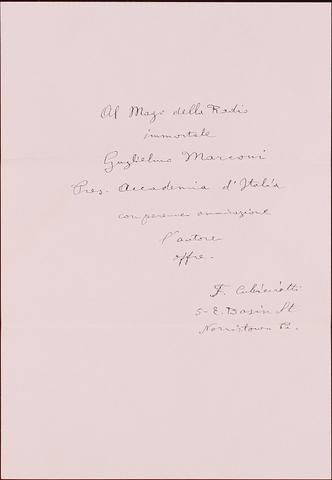 Al Mago della Radio
immortale
Guglielmo Marconi
Pres. Accademia d'Italia
con perenne ammirazione
l'autore
offre.
F. Cubicciotti
5 - E. Basin St
Norristown Pa.